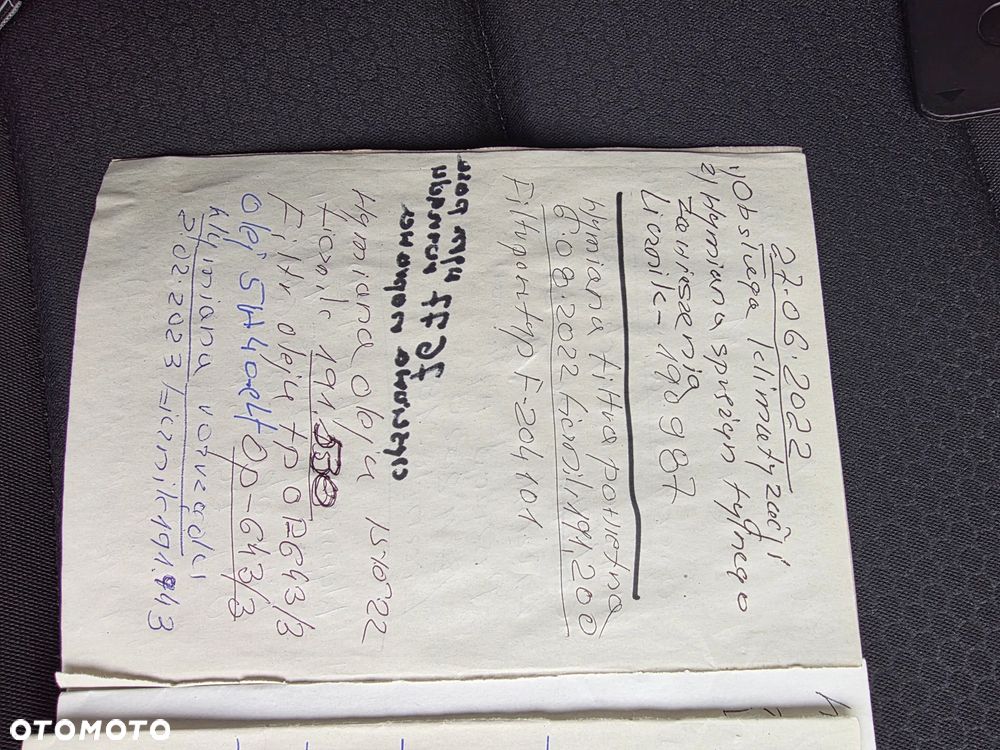 27.06.2022
1) Obsługa klimatyzacji
2) Wymiana sprężyn tylnego
zawieszenia
Licznik - 190987
Wymiana filtra powietrza
6.08.2022 Licznik. 191,200
Filtypon typ F-204101
Wymiana oleju 15.10.22
Liczik 191.530
Filtr oleju tp OP643/3
Olej 5W40elf OP-643/3
Wymiana rozrządu
2.02.2023 Licznik-191.943
OTOMOTO